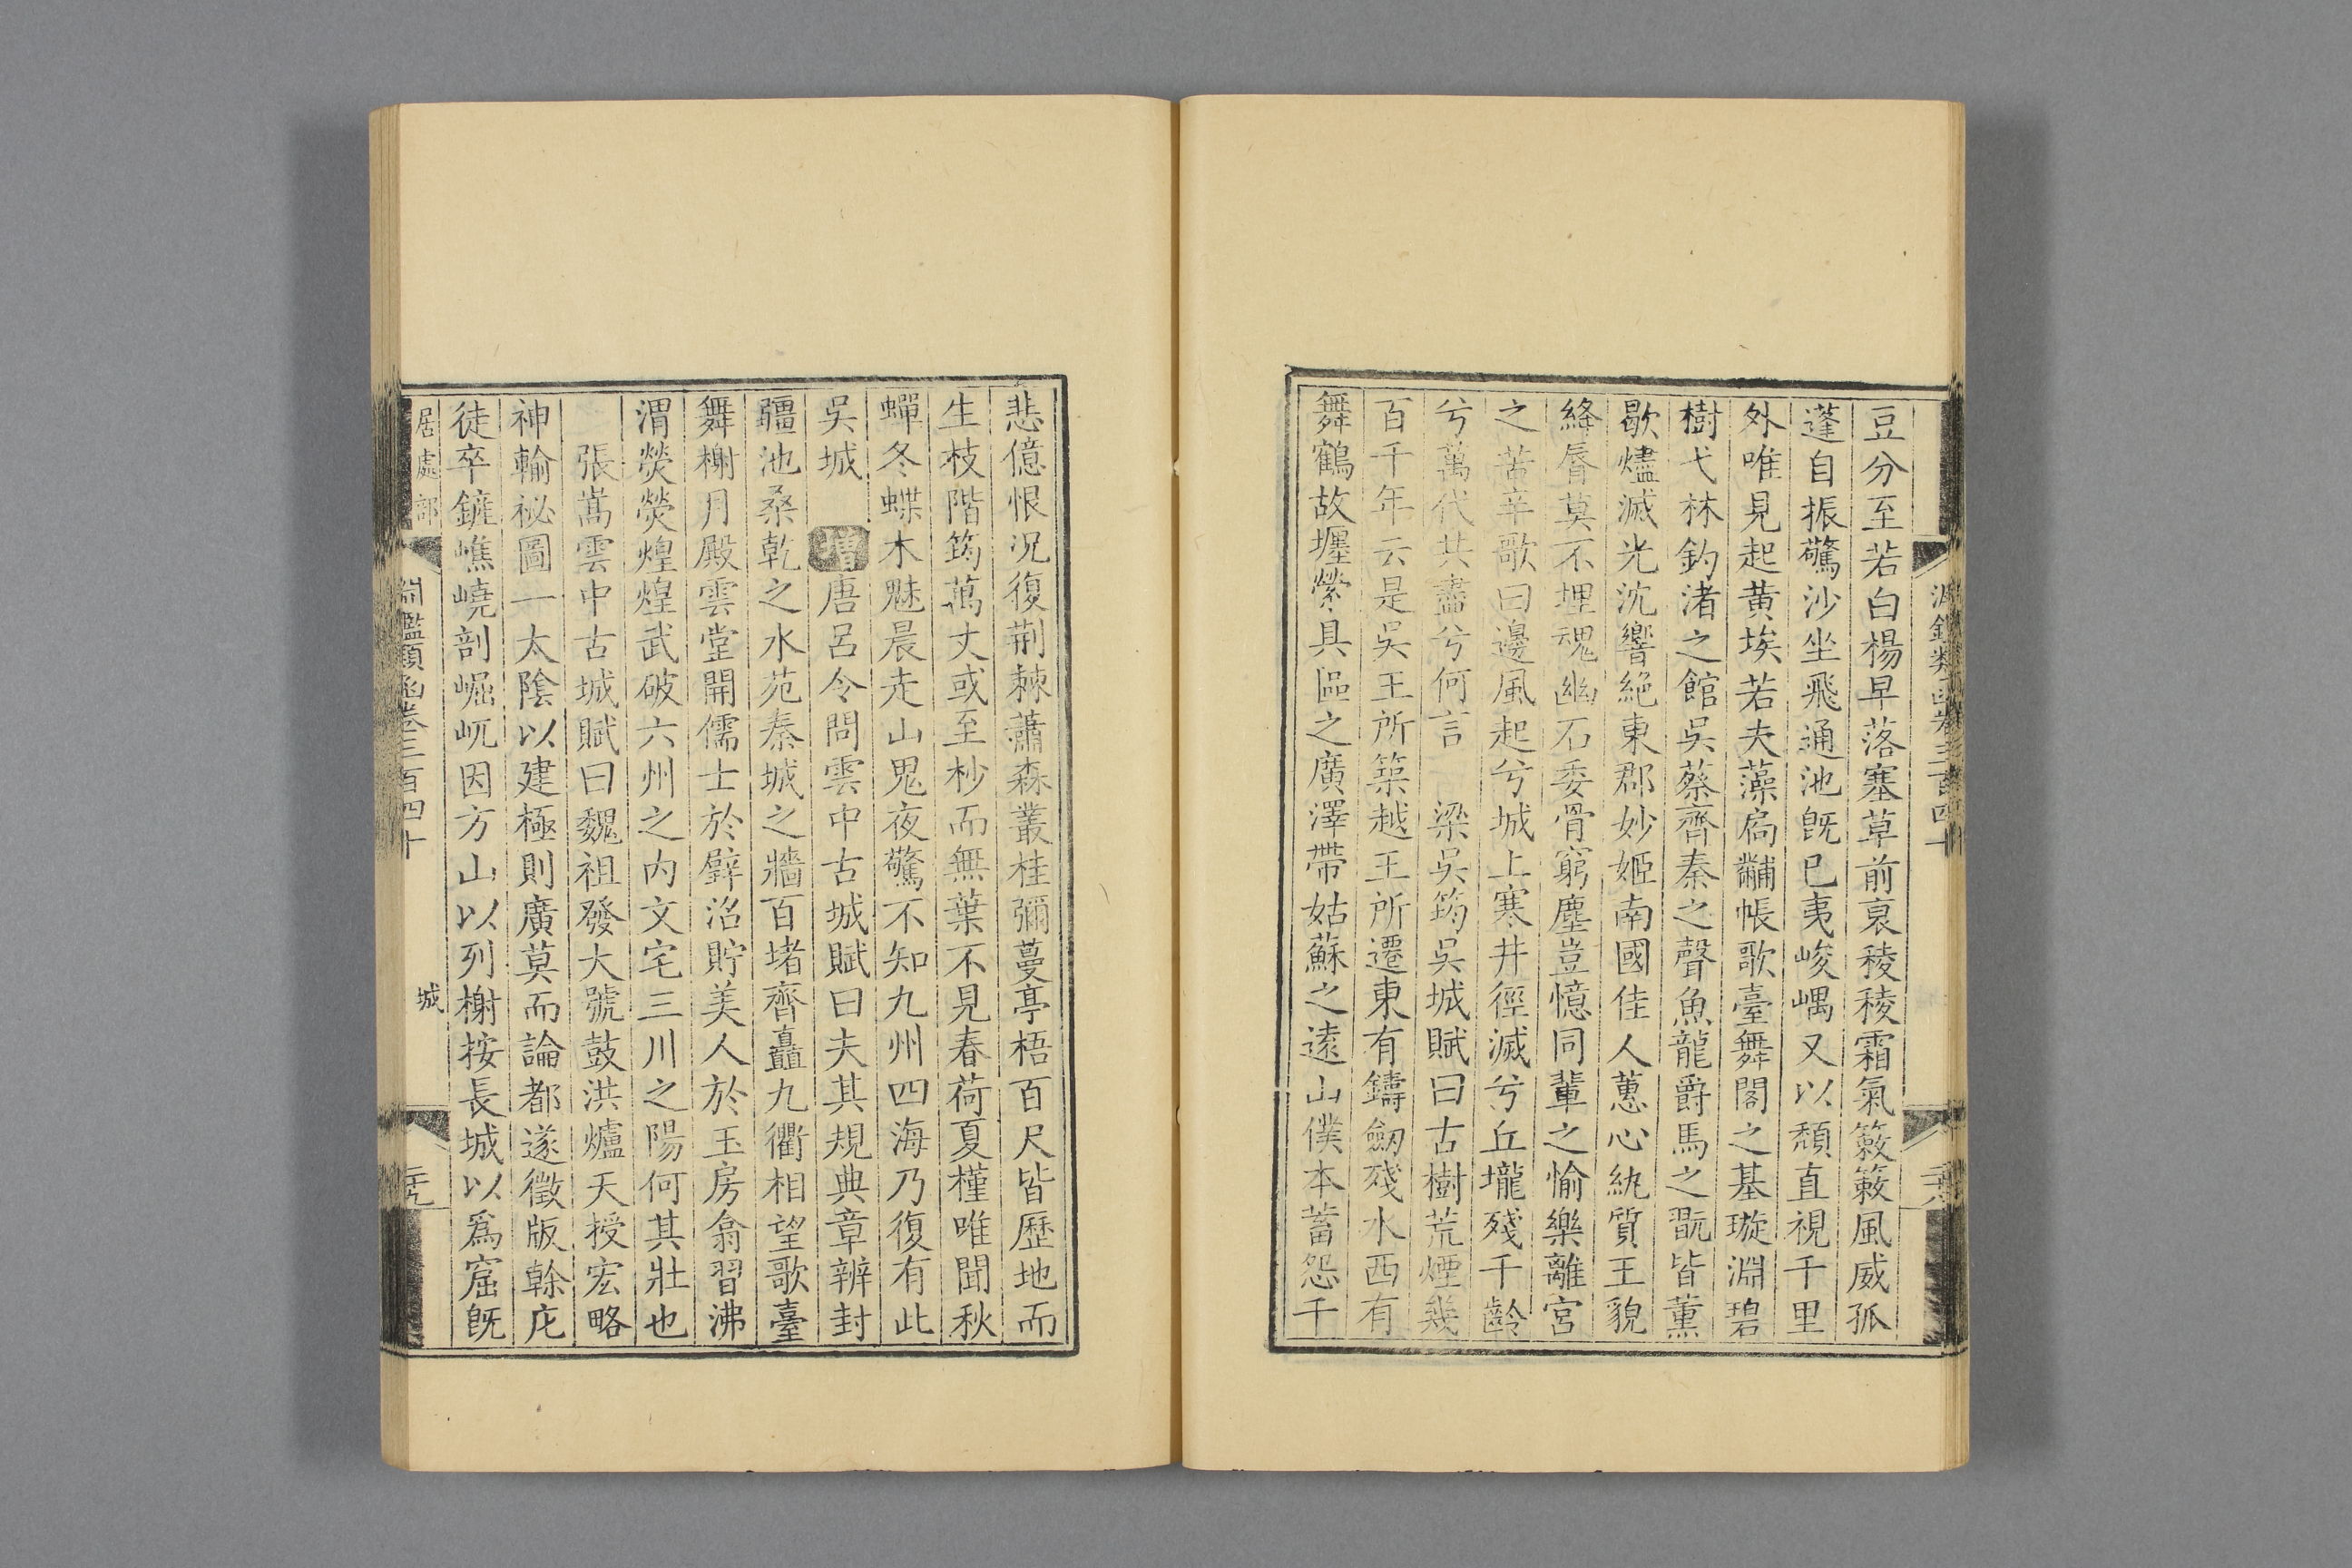 豆分至若白楊早落塞草前衰稜稜霜氣簌簌風威孤
蓬自振驚沙坐飛通池旣已夷峻嵎又以頹直視千里
外唯見起黃埃若夫藻扃黼帳歌臺舞閣之基璇淵碧
樹弋林釣渚之館吳蔡齊秦之聲魚龍爵馬之翫皆薰
歇燼滅光沈響絕東郡妙姬南國佳人蕙心紈質玉貌
絳脣莫不埋魂幽石委骨窮塵豈憶同輩之愉樂離宮
之苦辛歌曰邊風起兮城上寒井徑滅兮丘壠殘千齡
兮萬代共盡兮何言　梁吳筠吳城賦曰古樹荒煙幾
百千年云是吳王所築越王所遷東有鑄劒殘水西有
舞鶴故壥縈具區之廣澤帶姑蘇之遠山僕本蓄怨千
悲億恨況復荊棘蕭森叢桂彌蔓亭梧百尺皆歷地而
生枝階筠萬丈或至杪而無葉不見春荷夏槿唯聞秋
蟬冬蝶木魅晨走山鬼夜驚不知九州四海乃復有此
吳城　增唐呂令問雲中古城賦曰夫其規典章辨封
疆池桑乾之水苑秦城之牆百堵齊矗九衢相望歌臺
舞榭月殿雲堂開儒士於辟沼貯美人於玉房翕習沸
渭熒熒煌煌武破六州之內文宅三川之陽何其壯也
張嵩雲中古城賦曰魏祖發大號鼓洪爐天授宏略
神輸祕圖一太陰以建極則廣莫而論都遂徵版榦庀
徒卒鏟嶕嶢剖崛岉因方山以列榭按長城以爲窟旣
居處部
淵鑑類函卷三百四十
城